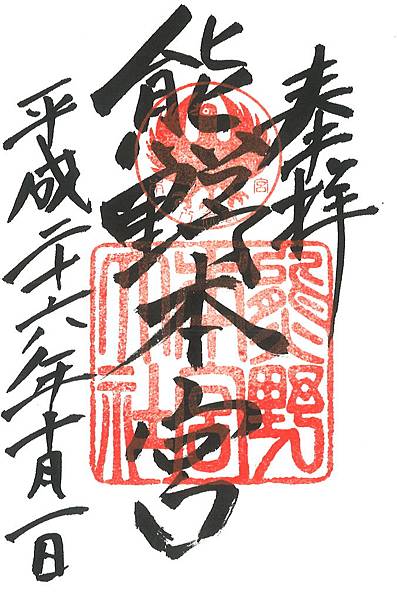 奉拝
熊野本宮
平成二十六年十月一日
熊野
本宮
大社